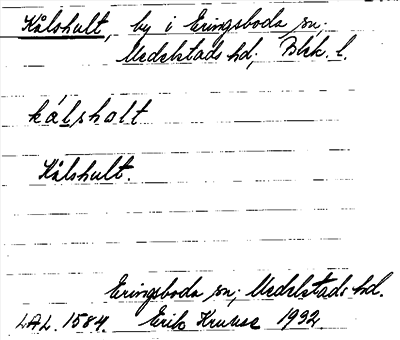 Kålshult, by i Eringsboda sn;
Medelstads hd; Blek. l.
kálsholt
Kålshult.
Eringsboda sn; Medelstads hd.
LAL. 1584. Erik Kruuse 1932.